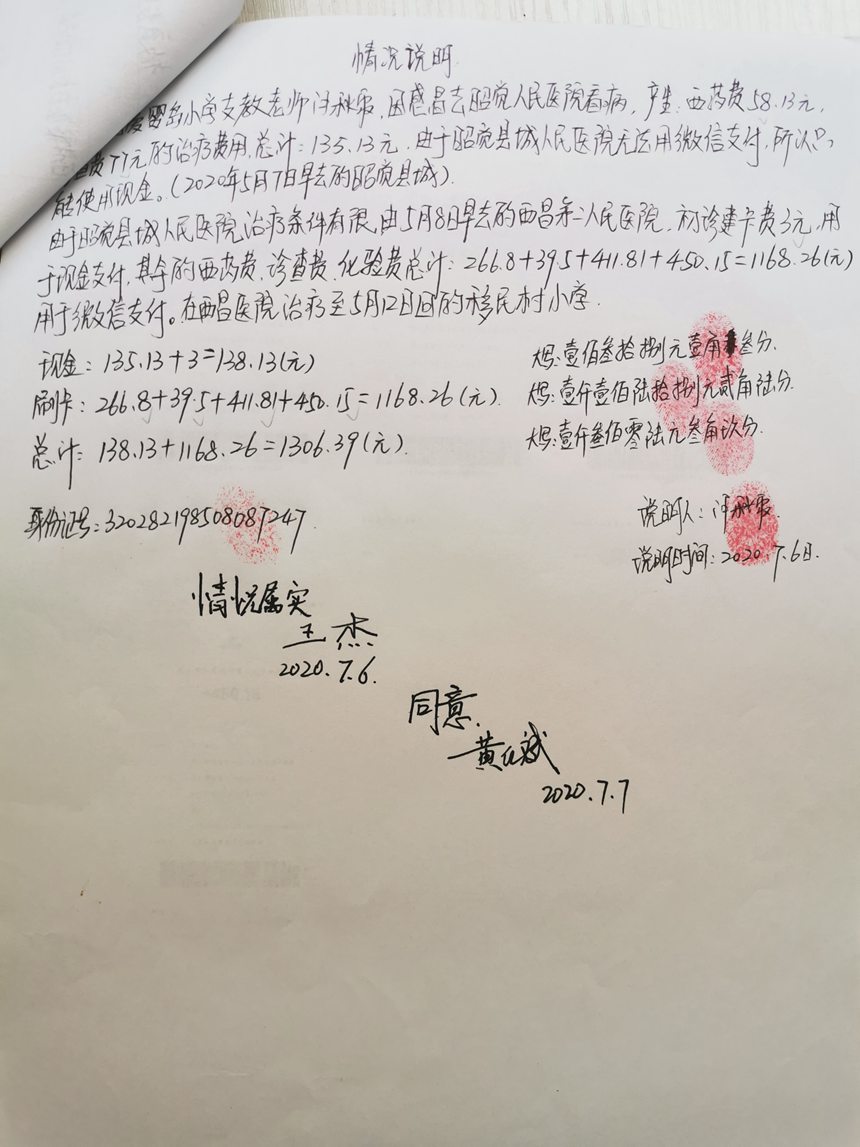 情况说明
小学支教老师 因感冒去昭觉人民医院看病，产生：西药费58.13元，
费77元的治疗费用，总计：135.13元，由于昭觉县城人民医院无法用微信支付，所以只
能使用现金。（2020年5月7日早去的昭觉县城）.
由于昭觉县城人民医院治疗条件有限，由5月8日早去的西昌第二人民医院，初诊建卡费3元，用
于现金支付，其余的西药费、诊查费、化验费总计：266.8+39.5+411.81+450.15=1168.26(元)
用于微信支付。在西昌医院治疗至5月12日回的移民村小学.
现金：135.13+3=138.13(元) 大写:壹佰叁拾捌元壹角叁分.
刷卡：266.8+39.5+411.81+450.15=1168.26(元) 大写:壹仟壹佰陆拾捌元贰角陆分.
总计：138.13+1168.26=1306.39(元). 大写:壹仟叁佰零陆元叁角玖分.
身份证号：320282198508087247. 说明人：
说明时间：2020.7.6日.
情况属实
王杰
2020.7.6.
同意.
黄化斌
2020.7.7